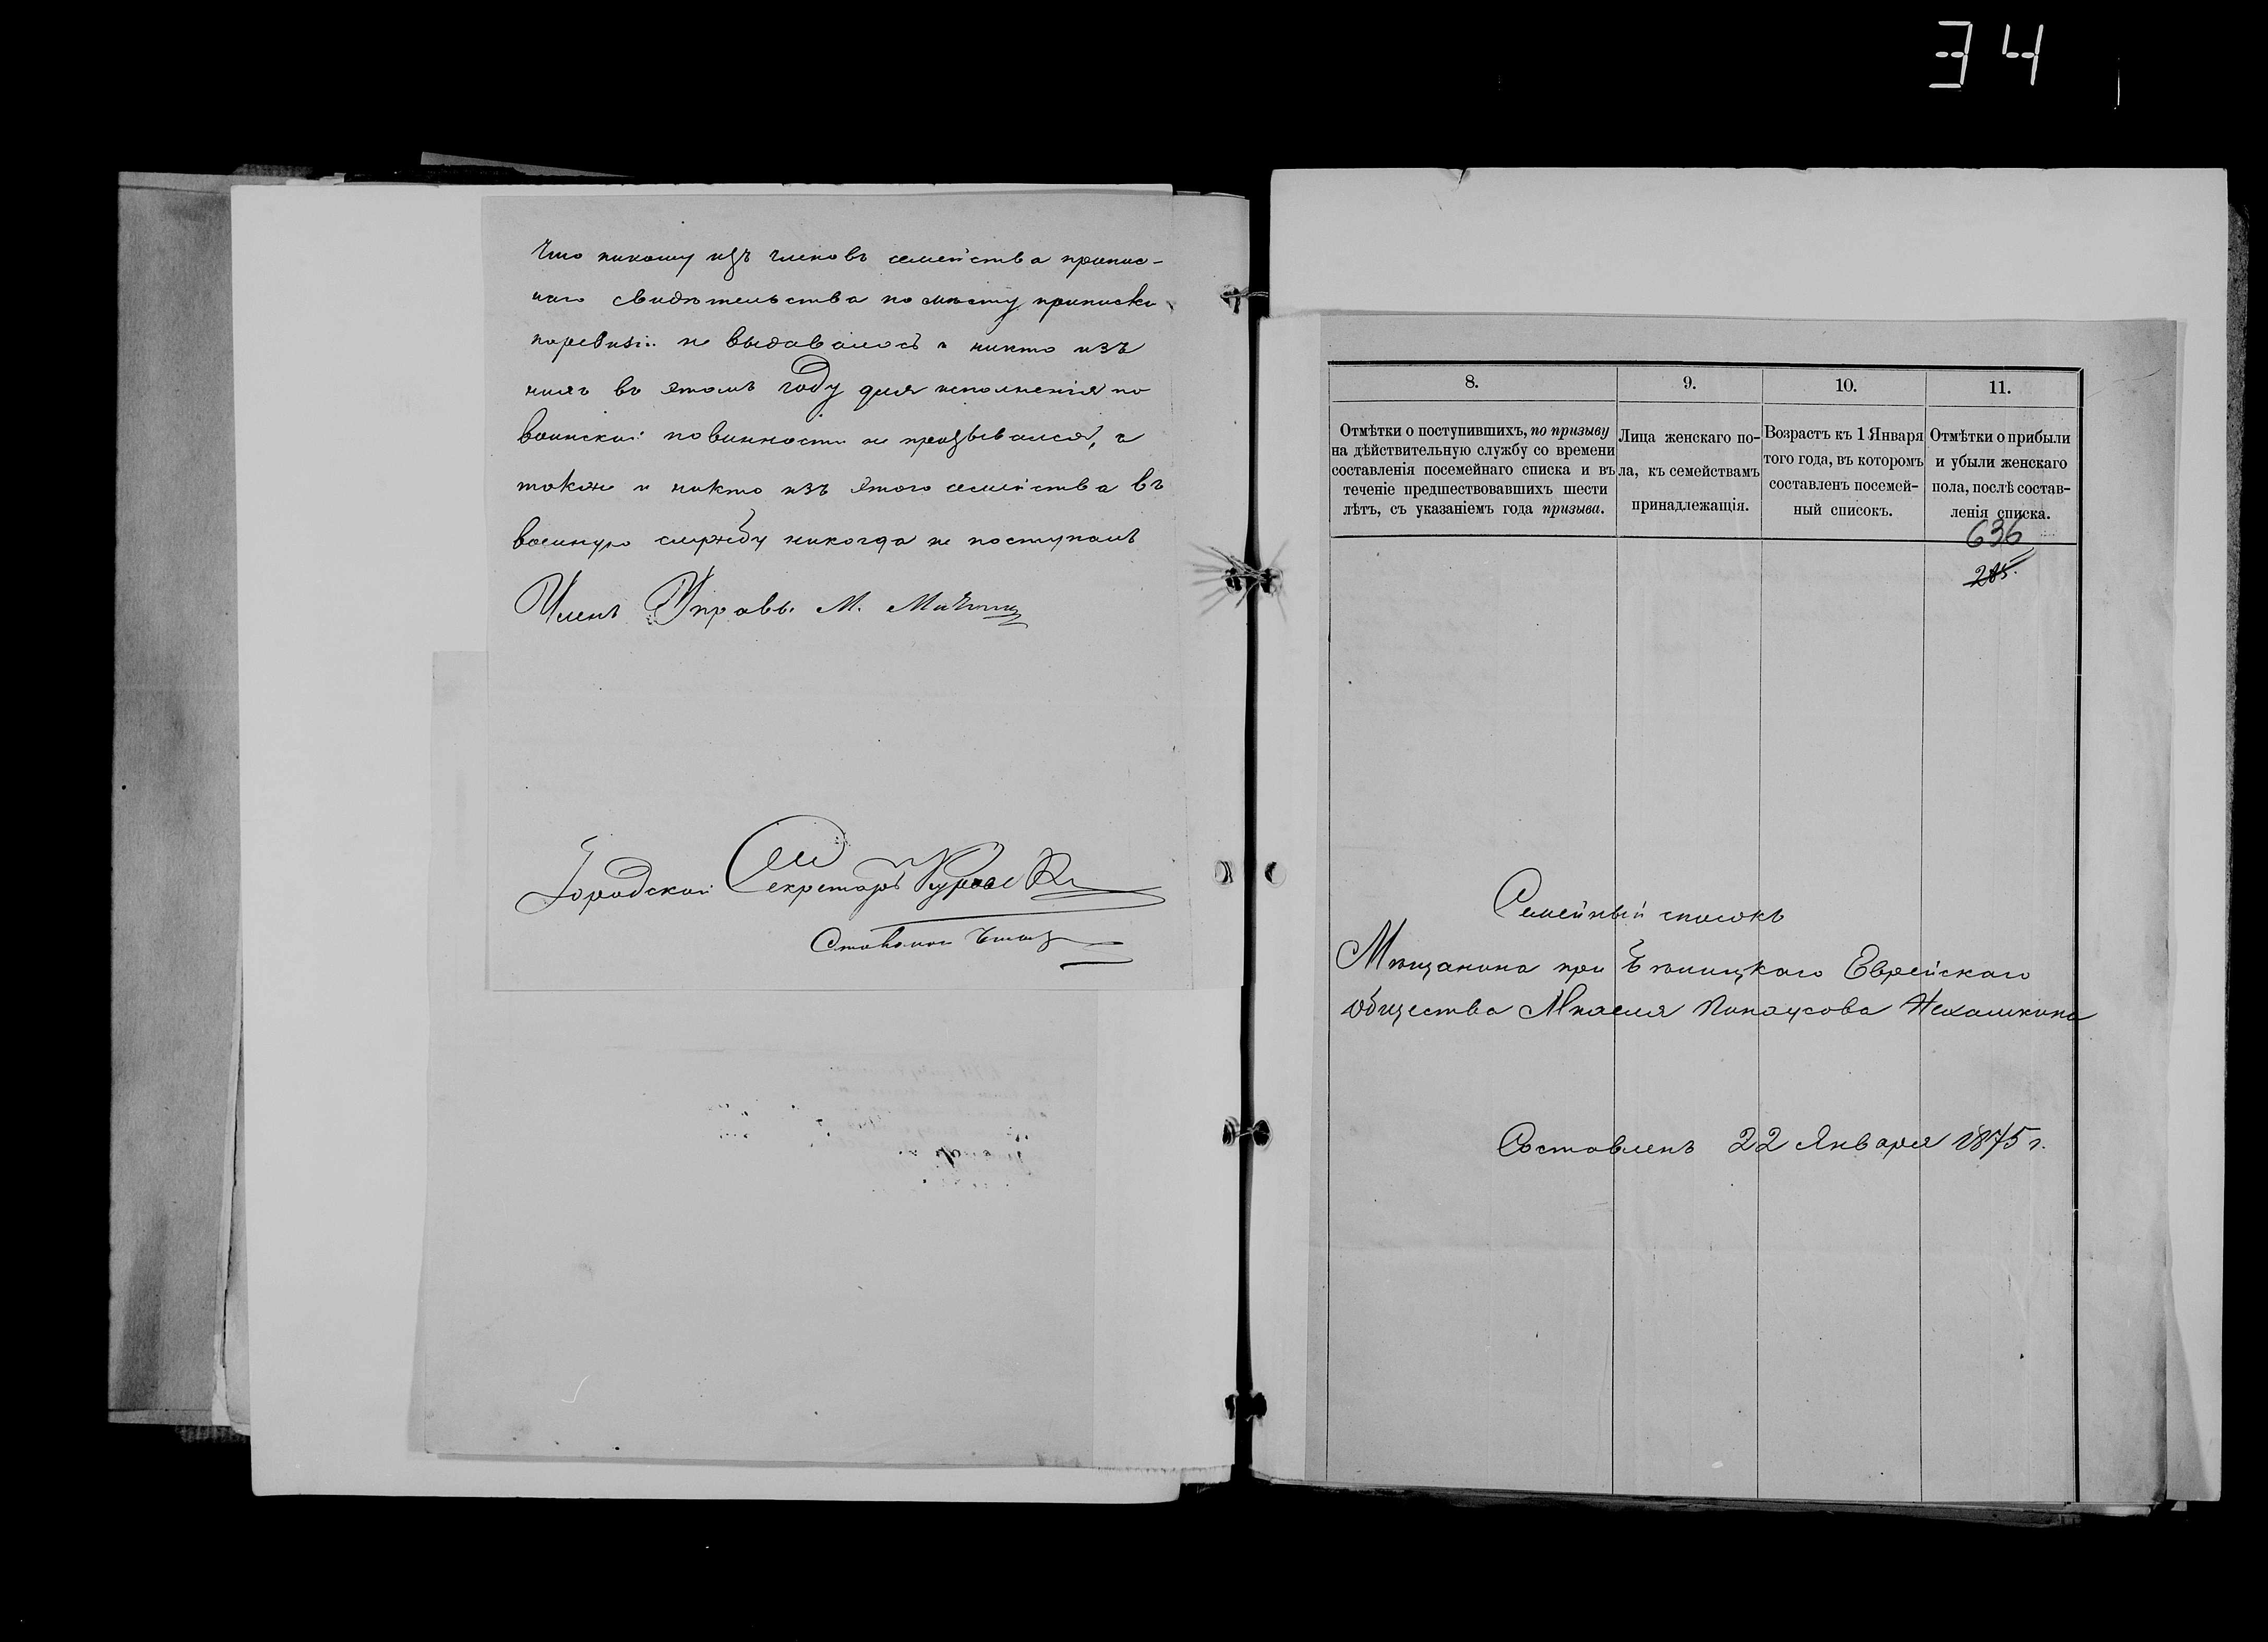 34
Что никому изъ членовъ семейства припис-
наго свидѣтельства по мѣсту приписки
поревизіи не выдавалось и никто изъ
нихъ въ этомъ году для исполненія по
воинской повинности не призывался, а
также и никто изъ этого семейства въ
военную службу никогда не поступалъ
Членъ Управы М.
Городской Секретарь
8.
9.
10.
11.
Отмѣтки о поступившихъ, по призыву
на дѣйствительную службу со времени
составленія посемейнаго списка и въ
теченіе предшествовавшихъ шести
лѣтъ, съ указаніемъ года призыва.
Лица женскаго по-
ла, къ семействамъ
принадлежащія.
Возрастъ къ 1 Января
того года, въ которомъ
составленъ посемей-
ный списокъ.
Отмѣтки о прибыли
и убыли женскаго
пола, послѣ состав-
ленія списка.
636
285.
Семейный списокъ
Мѣщанина при Бѣлицкаго Еврейскаго
общества Пинхусова
Составленъ 22 Января 1875 г.